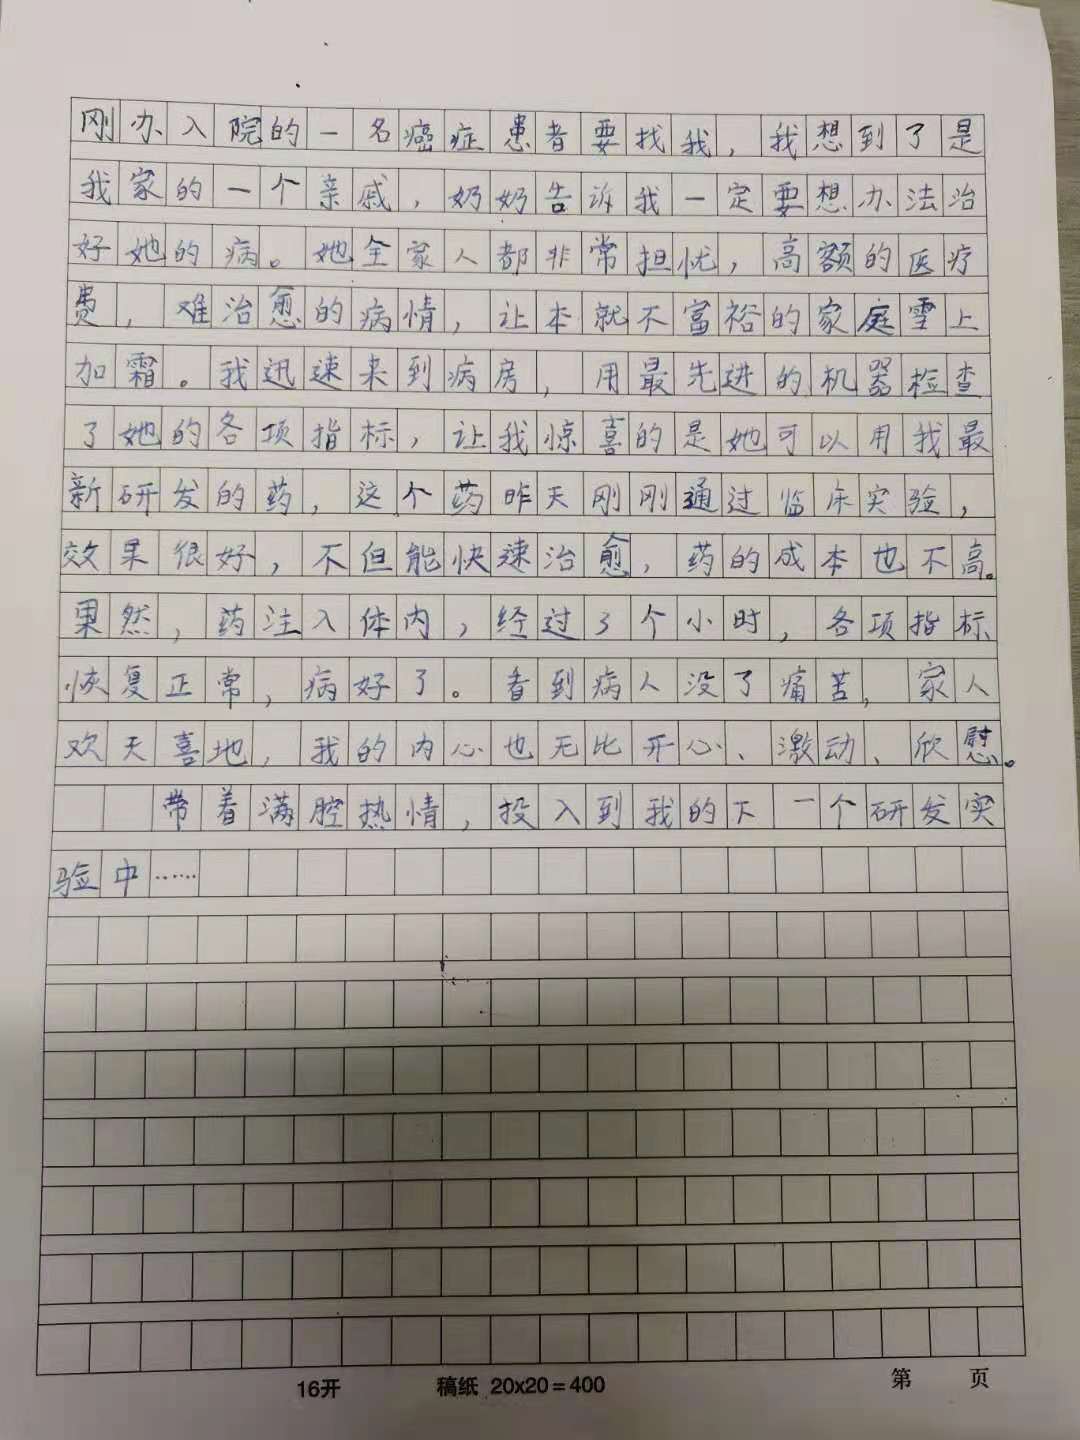 刚办入院的一名癌症患者要找我，我想到了是
我家的一个亲戚，奶奶告诉我一定要想办法治
好她的病。她全家人都非常担忧，高额的医疗
费，难治愈的病情，让本就不富裕的家庭雪上
加霜。我迅速来到病房，用最先进的机器检查
了她的各项指标，让我惊喜的是她可以用我最
新研发的药，这个药昨天刚刚通过临床实验，
效果很好，不但能快速治愈，药的成本也不高。
果然，药注入体内，经过3个小时，各项指标
恢复正常，病好了。看到病人没了痛苦，家人
欢天喜地，我的内心也无比开心、激动、欣慰。
带着满腔热情，投入到我的下一个研发实
验中……
16开 稿纸 20x20=400 第 页